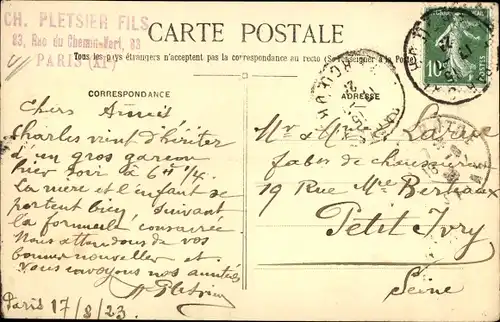 CH. PLETSIER FILS
83, Rue du Chemin-Vert, 83
PARIS (XIe)
CARTE POSTALE
Tous les pays étrangers n'acceptent pas la correspondance au recto (Se renseigner à la Poste)
CORRESPONDANCE
ADRESSE
10
POSTES
Chers Amis
Charles vient d'hériter
d'un gros garçon
hier soir à 6 h 1/4.
La mère et l'enfant se
portent bien, suivant
la formule consacrée
Nous attendons de vos
bonnes nouvelles et
vous envoyons nos amitiés
Pletsier
Paris 17/8/23
Mr & Mme
fabt de chaussures
19 Rue Mce Berteaux
Petit Ivry
Seine